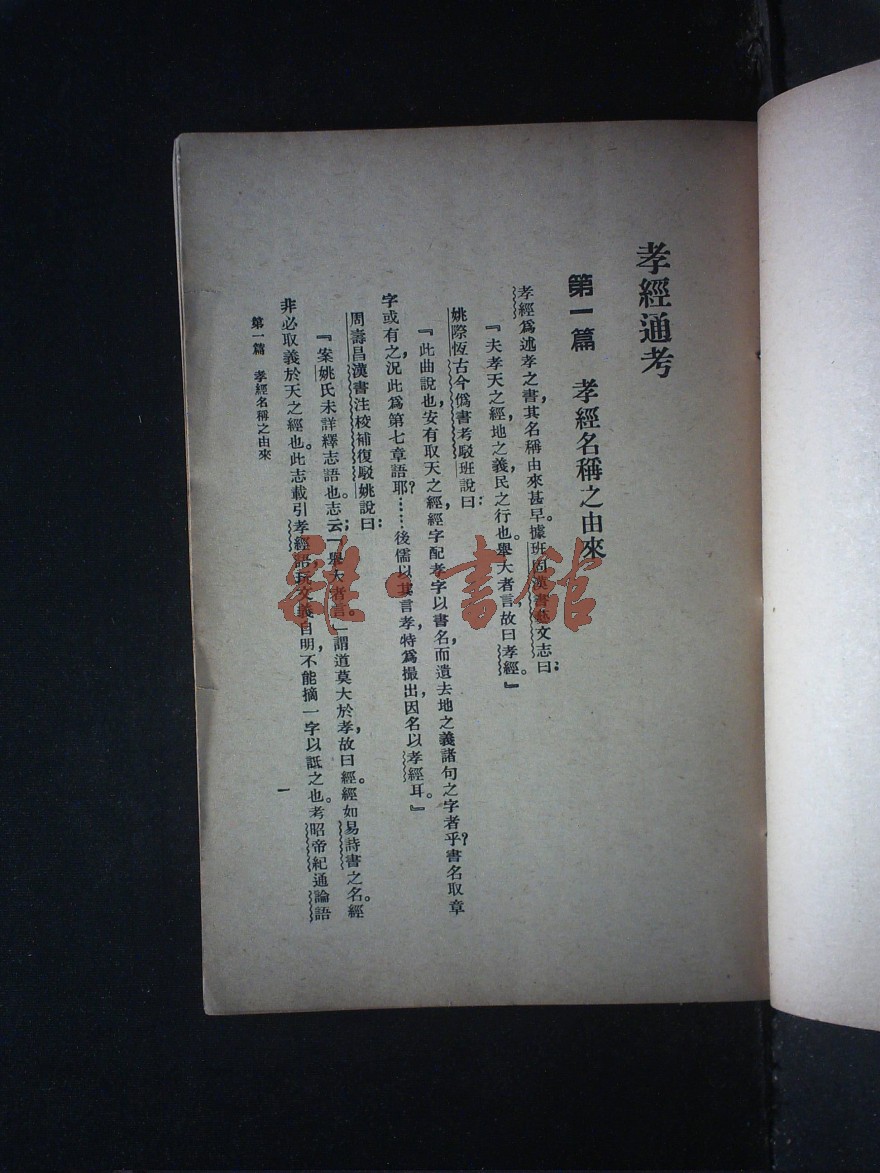 孝經通考
第一篇　孝經名稱之由來
孝經爲述孝之書，其名稱由來甚早。據班固漢書藝文志曰：
『夫孝天之經，地之義，民之行也。舉大者言，故曰孝經。』
姚際恆古今僞書考駁班說曰：
『此曲說也，安有取天之經，經字配孝字以書名，而遺去地之義諸句之字者乎？書名取章
字或有之，況此爲第七章語耶？……後儒以其言孝，特爲撮出，因名以孝經耳。』
周壽昌漢書注校補復駁姚說曰：
『案姚氏未詳繹志語也。志云：「舉大者言。」謂道莫大於孝，故曰經。經如易詩書之名。經
非必取義於天之經也。此志載引孝經語，玩文義自明，不能摘一字以詆之也。考昭帝紀通論語
第一篇　孝經名稱之由來
一
雒·書館